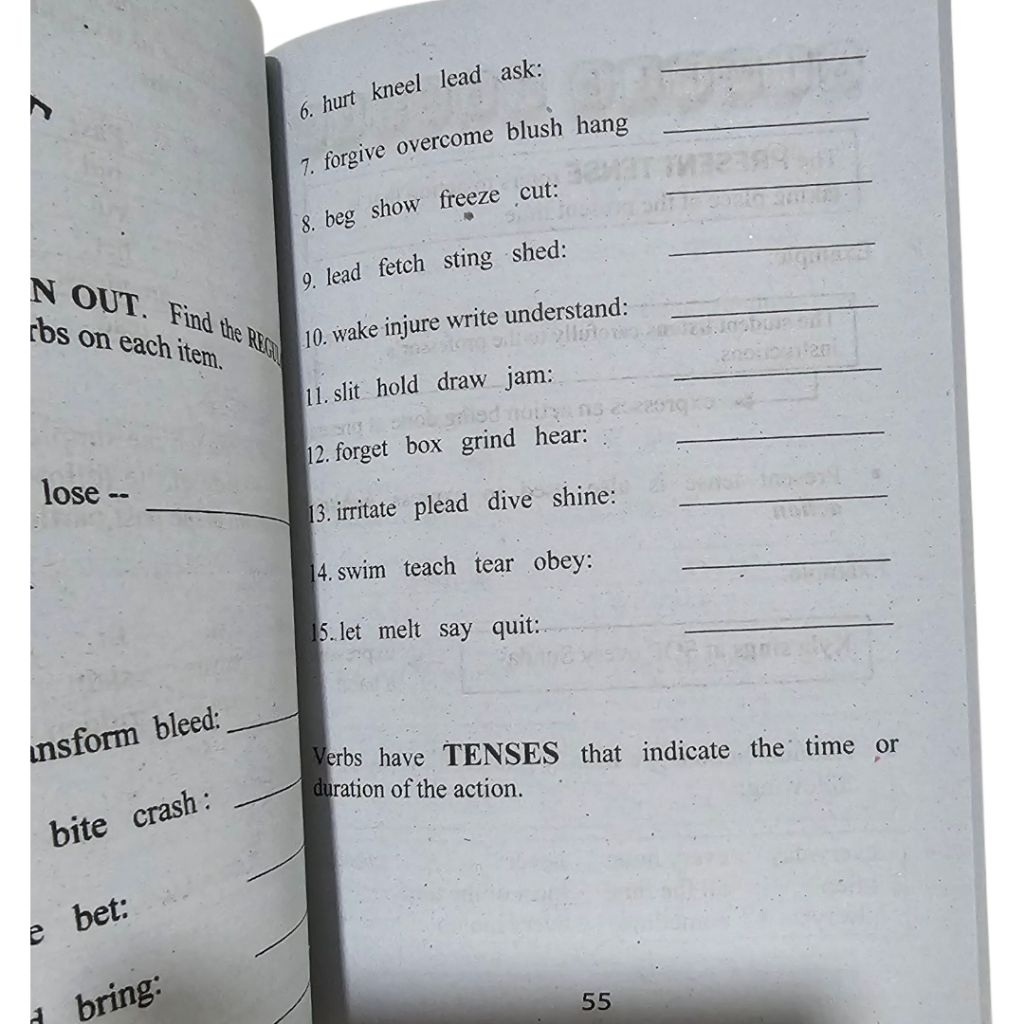 N OUT. Find the
rbs on each item.
lose --
bleed:
bite crash :
bet:
bring:
6. hurt kneel lead ask:
7. forgive overcome blush hang
8. beg show freeze cut:
9. lead fetch sting shed:
10. wake injure write understand:
11. slit hold draw jam:
12. forget box grind hear:
13. irritate plead dive shine:
14. swim teach tear obey:
15. let melt say quit:
Verbs have TENSES that indicate the time or
duration of the action.
55